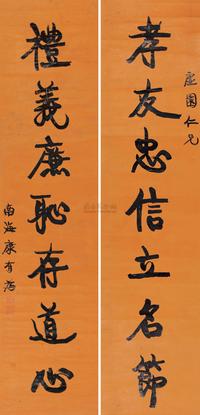 虚園仁兄
孝友忠信立名節
禮義廉恥存道心
南海康有為